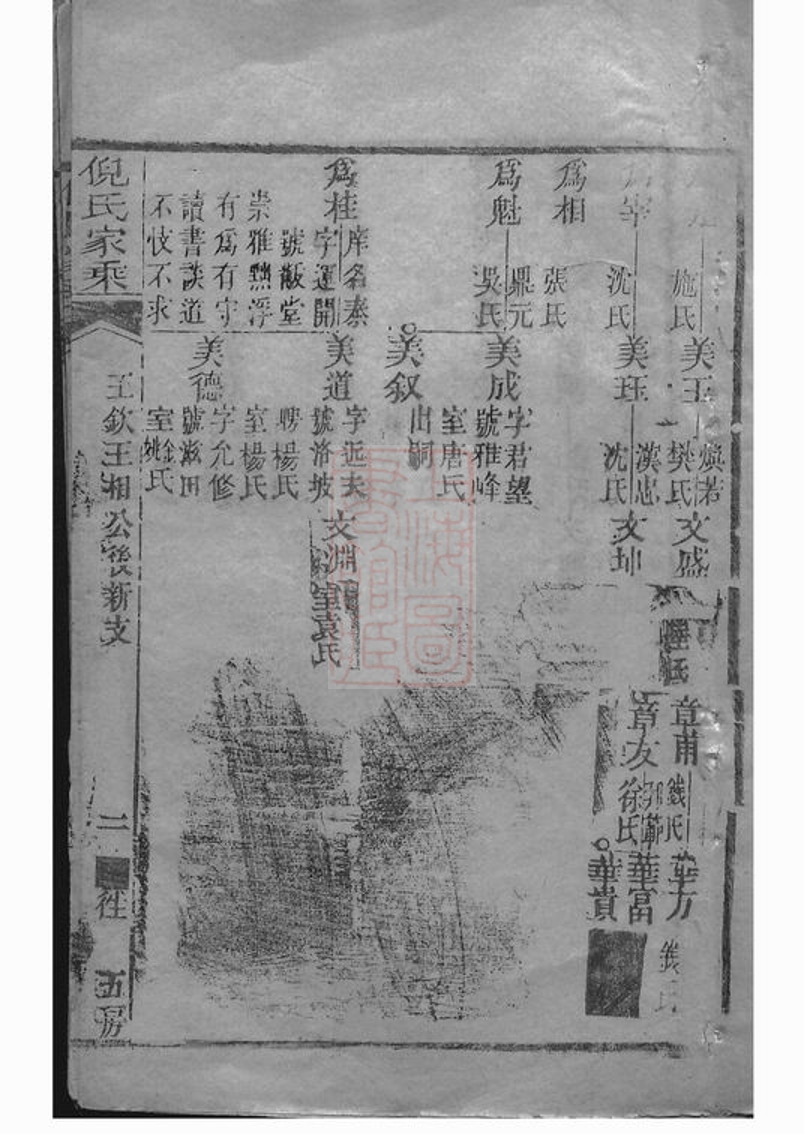 施氏
美玉
煥若
樊氏
文盛
章甫
錢氏
華方
沈氏
美珏
漢忠
沈氏
章友
徐氏
華富
華貴
為相
張氏
為魁
鼎元
吳氏
美成
字君望
號雅峰
室唐氏
美叙
出嗣
為桂
庠名泰
字運開
號敬堂
崇雅黜浮
有為有守
讀書談道
不忮不求
美道
字近夫
號洛坡
聘楊氏
室楊氏
文淵
室袁氏
美德
字允修
號滋田
室姚氏
倪氏家乘
王欽王相公後新支
二
五房